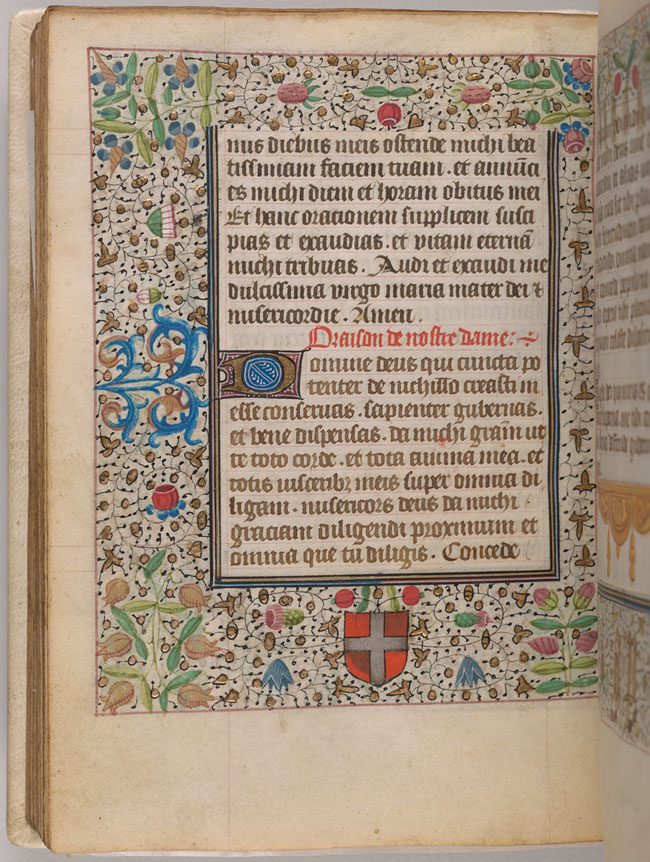 mis diebus meis ostende michi bea
tissimam faciem tuam. et annūci
es michi diem et horam obitus mei
Et hanc orationem supplicem susci
pias et exaudias. et vitam eternā
michi tribuas. Audi et exaudi me
dulcissima virgo maria mater dei &
misericordie. Amen.
Oraison de nostre dame:
Domine deus qui cuncta po
tenter de nichillo creasti in
esse conservas. sapienter gubernas.
et bene dispensas. da michi grām ut
te toto corde. et tota anima mea. et
totis viscerib meis super omnia di
ligam. misericors deus da michi
graciam diligendi proximum et
omnia que tu diligis. Concede